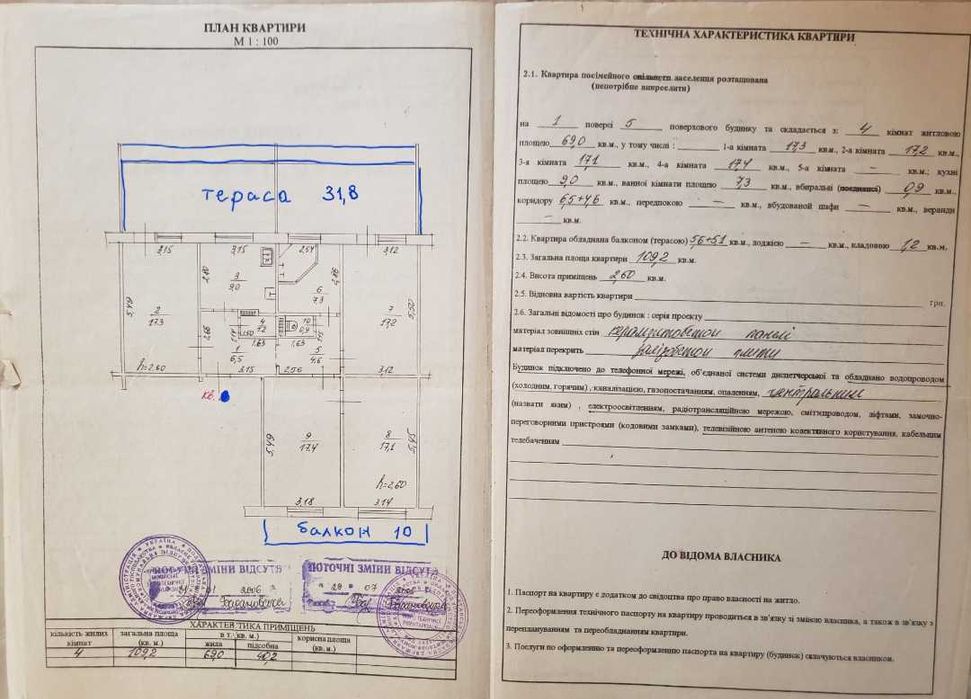 ПЛАН КВАРТИРИ
М 1 : 100
тераса 31,8
3,15 3,15 2,54 3,12
5,49
2
17.3
2,80
3
9.0
6
7.3
2,86
7
17,2
5,50
2,66
4
1,50
1,63
10
0,9
1,63
1
6,5
5
4,6
h=2.60
3.15 2,56 3.12
кв.
5,49
9
17,4
8
17,1
5,45
h=2,60
3,18 3,14
балкон 10
ПОТОЧНІ ЗМІНИ ВІДСУТН
2006
ПОТОЧНІ ЗМІНИ ВІДСУТН
07
ХАРАКТЕРИСТИКА ПРИМІЩЕНЬ
кількість жилих кімнат
загальна площа (кв. м.)
в т.ч. (кв. м.)
жила
підсобна
корисна площа (кв. м.)
4 109,2 69,0 40,2
ТЕХНІЧНА ХАРАКТЕРИСТИКА КВАРТИРИ
2.1. Квартира посімейного спільного заселення розташована
(непотрібне викреслити)
на 1 поверсі 5 поверхового будинку та складається з: 4 кімнат житловою
площею 69,0 кв.м., у тому числі : 1-а кімната 17,3 кв.м., 2-а кімната 17,2 кв.м.,
3-я кімната 17,1 кв.м., 4-а кімната 17,4 кв.м., 5-а кімната – кв.м.; кухні
площею 9,0 кв.м., ванної кімнати площею 7,3 кв.м., вбиральні (поєднаної) 0,9 кв.м.,
коридору 6,5+4,6 кв.м., передпокою – кв.м., вбудованої шафи – кв.м., веранди
– кв.м.
2.2. Квартира обладнана балконом (терасою) 5,6+5,1 кв.м., лоджією – кв.м., кладовою 1,2 кв.м.
2.3. Загальна площа квартири 109,2 кв.м.
2.4. Висота приміщень 2,60 кв.м.
2.5. Відновна вартість квартири грн.
2.6. Загальні відомості про будинок : серія проекту
матеріал зовнішніх стін керамзитобетон панелі
матеріал перекрить залізобетон плити
Будинок підключено до телефонної мережі, об'єднаної системи диспетчерської та обладнано водопроводом
(холодним, горячим) , каналізацією, газопостачанням, опаленням, центральним
(назвати яким) , електроосвітленням, радіотрансляційною мережою, сміттєпроводом, ліфтами, замочно-
переговорними пристроями (кодовими замками), телевізійною антеною колективного користування, кабельним
телебаченням
ДО ВІДОМА ВЛАСНИКА
1. Паспорт на квартиру є додатком до свідоцтва про право власності на житло.
2. Переоформлення технічного паспорту на квартиру проводиться в зв'язку зі зміною власника, а також в зв'язку з
переплануванням та переобладнанням квартири.
3. Послуги по оформленню та переоформленню паспорта на квартиру (будинок) сплачуються власником.